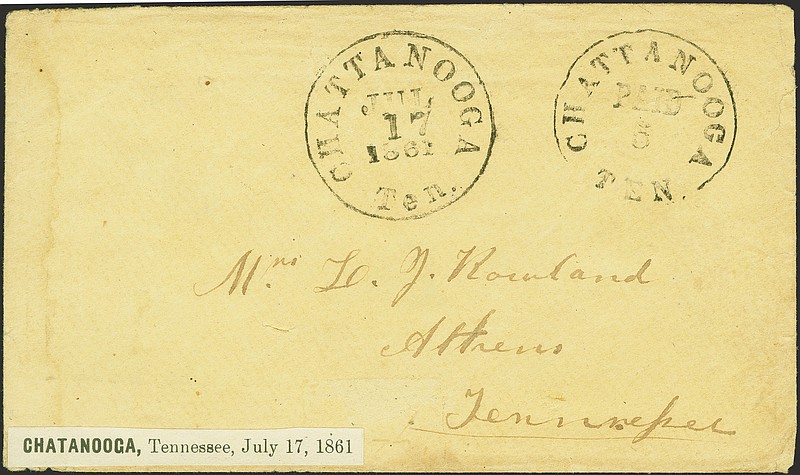 CHATTANOOGA
JUL
17
1861
Ten.
CHATTANOOGA
PAID
5
TEN.
Mrs. L. J. Rowland
Athens
Tennessee
CHATANOOGA, Tennessee, July 17, 1861